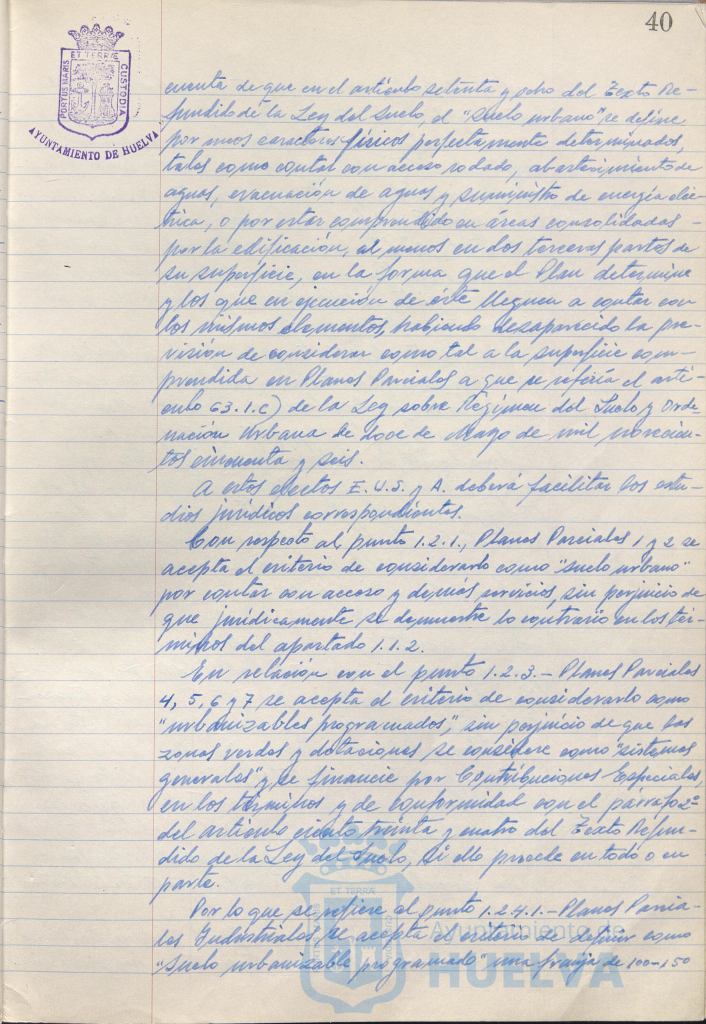 40
ET TERRÆ
PORTUS MARIS
CUSTODIA
AYUNTAMIENTO DE HUELVA
cuenta de que en el artículo setenta y ocho del Texto Re-
fundido de la Ley del Suelo, el "Suelo urbano" se define
por unos caracteres físicos perfectamente determinados,
tales como contar con acceso rodado, abastecimiento de
aguas, evacuación de aguas y suministro de energía eléc-
trica, o por estar comprendido en áreas consolidadas -
por la edificación, al menos en dos terceras partes de
su superficie, en la forma que el Plan determine
y los que en ejecución de éste lleguen a contar con
los mismos elementos, habiendo desaparecido la pre-
visión de considerar como tal a la superficie com-
prendida en Planes Parciales a que se refería el artí-
culo 63.1.c) de la Ley sobre Régimen del Suelo y Orde-
nación Urbana de doce de Mayo de mil novecien-
tos cincuenta y seis.
A estos efectos E.U.S. y A. deberá facilitar los estu-
dios jurídicos correspondientes.
Con respecto al punto 1.2.1., Planes Parciales 1 y 2 se
acepta el criterio de considerarlo como "suelo urbano"
por contar con acceso y demás servicios, sin perjuicio de
que jurídicamente se demuestre lo contrario en los tér-
minos del apartado 1.1.2.
En relación con el punto 1.2.3.- Planes Parciales
4, 5, 6 y 7 se acepta el criterio de considerarlo como
"urbanizables programados", sin perjuicio de que las
zonas verdes y dotaciones se considere como "sistemas
generales" y se financie por Contribuciones Especiales,
en los términos y de conformidad con el párrafo 2º
del artículo ciento treinta y cuatro del Texto Refun-
dido de la Ley del Suelo, si ello procede en todo o en
parte.
Por lo que se refiere al punto 1.2.4.1.- Planes Parcia-
les Industriales se acepta el criterio de definir como
"Suelo urbanizable programado" una franja de 100-150
ET TERRÆ
Ayuntamiento de
HUELVA